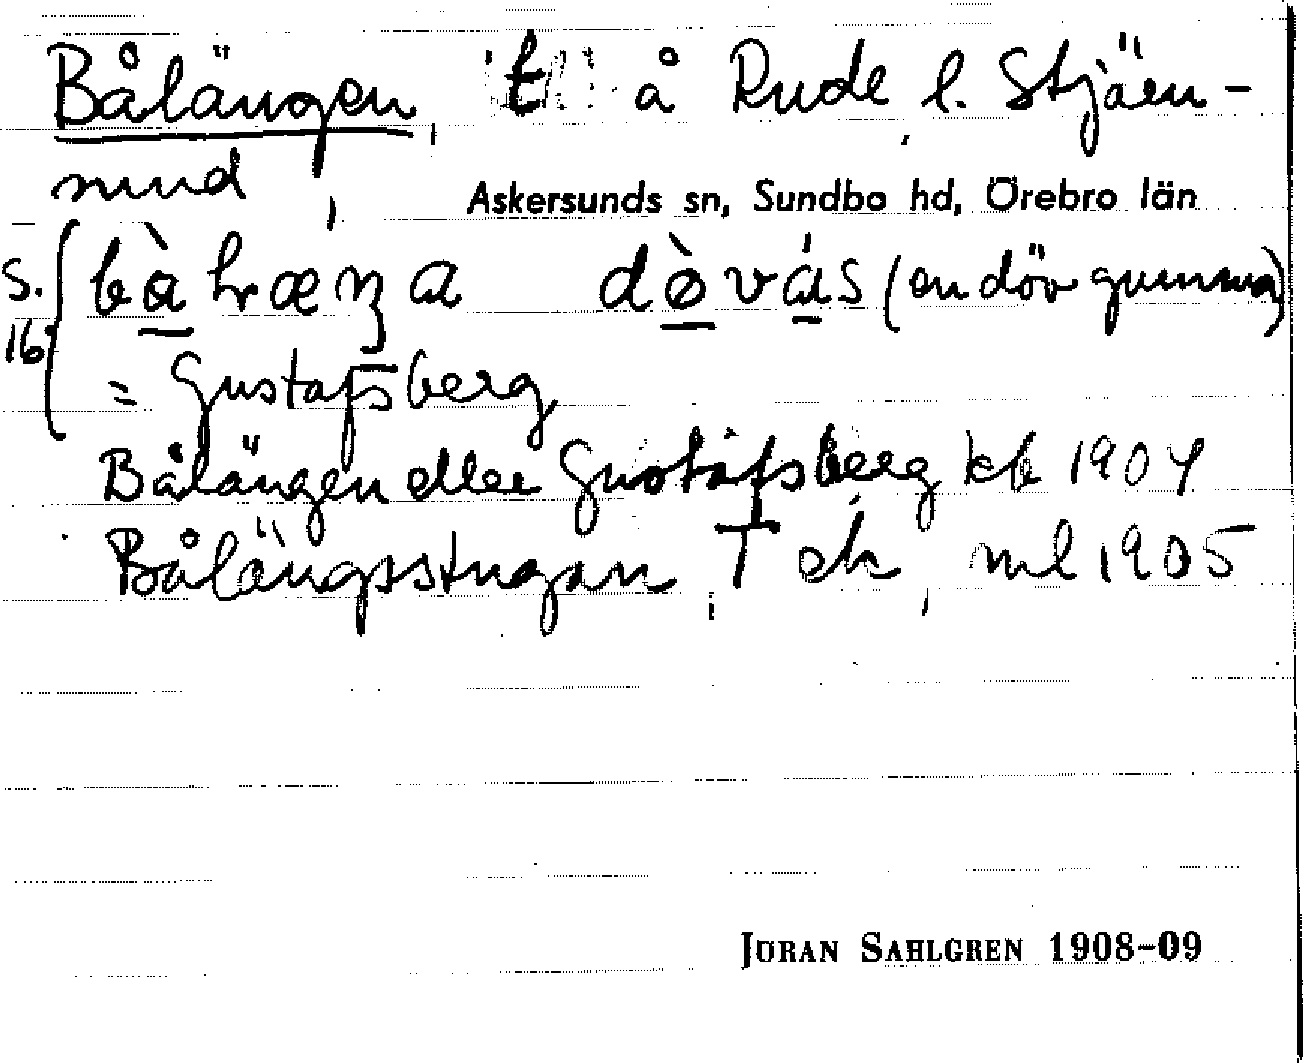 Bålängen, t å Rude, l. Stjärn-
sund,
Askersunds sn, Sundbo hd, Örebro län
S. 16 (en döv gumma)
= Gustafsberg
Bålängen eller Gustafsberg kb 1904
Bålängsstugan, T ek, ml 1905
JÖRAN SAHLGREN 1908-09